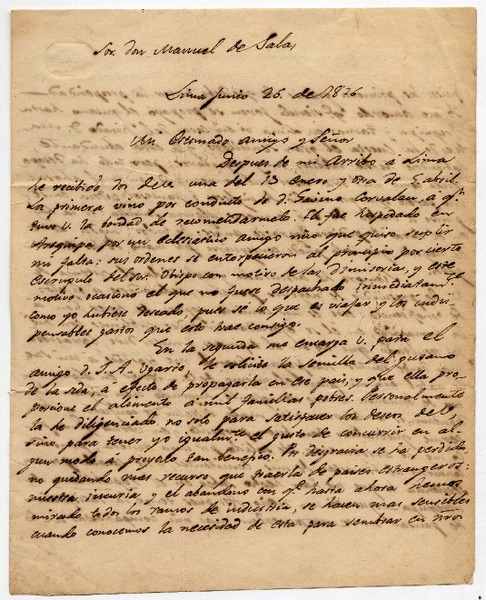 Sor. don Manuel de Salas
Lima Junio 26. de 1826
Mi Estimado amigo y Señor
Despues de mi Arribo á Lima
he recibido dos de U. una del 13 Enero y otra de 6 abril
La primera vino por conducto de D. Gavino Corvalan, á qn.
tuvo U. la bondad de recomendarmelo. El fue hospedado en
Arequipa por un eclesiastico amigo mio que quiso suplir
mi falta: sus ordenes se entorpecieron al principio por cierto
escrupulo del Sor. Obispo con motivo de las Dimisorias, y este
motivo ocasionó el que no fuese despachado inmediatamte.
como yo hubiese deseado, pues sé lo que es viajar y los indis
pensables gastos que esto trae consigo.
En la segunda me encarga U. para el
amigo D. J. A. Ugarte, le solicite la semilla del gusano
de la seda, a efecto de propagarla en ese pais, y que ella pro
porcione el alimento á mil familias pobres. Personalmente
la he diligenciado no solo para satisfacer los deseos de U.
sino para tener yo igualmte. el gusto de concurrir en al
gun modo á proyecto tan benefico. Por desgracia se ha perdido,
no quedando mas recurso que traerla de paises estrangeros:
nuestra incuria, y el abandono con qe. hasta ahora hemos
mirado todos los ramos de industria, se hacen mas sensibles
cuando conocemos la necesidad de esta para sembrar en ntros